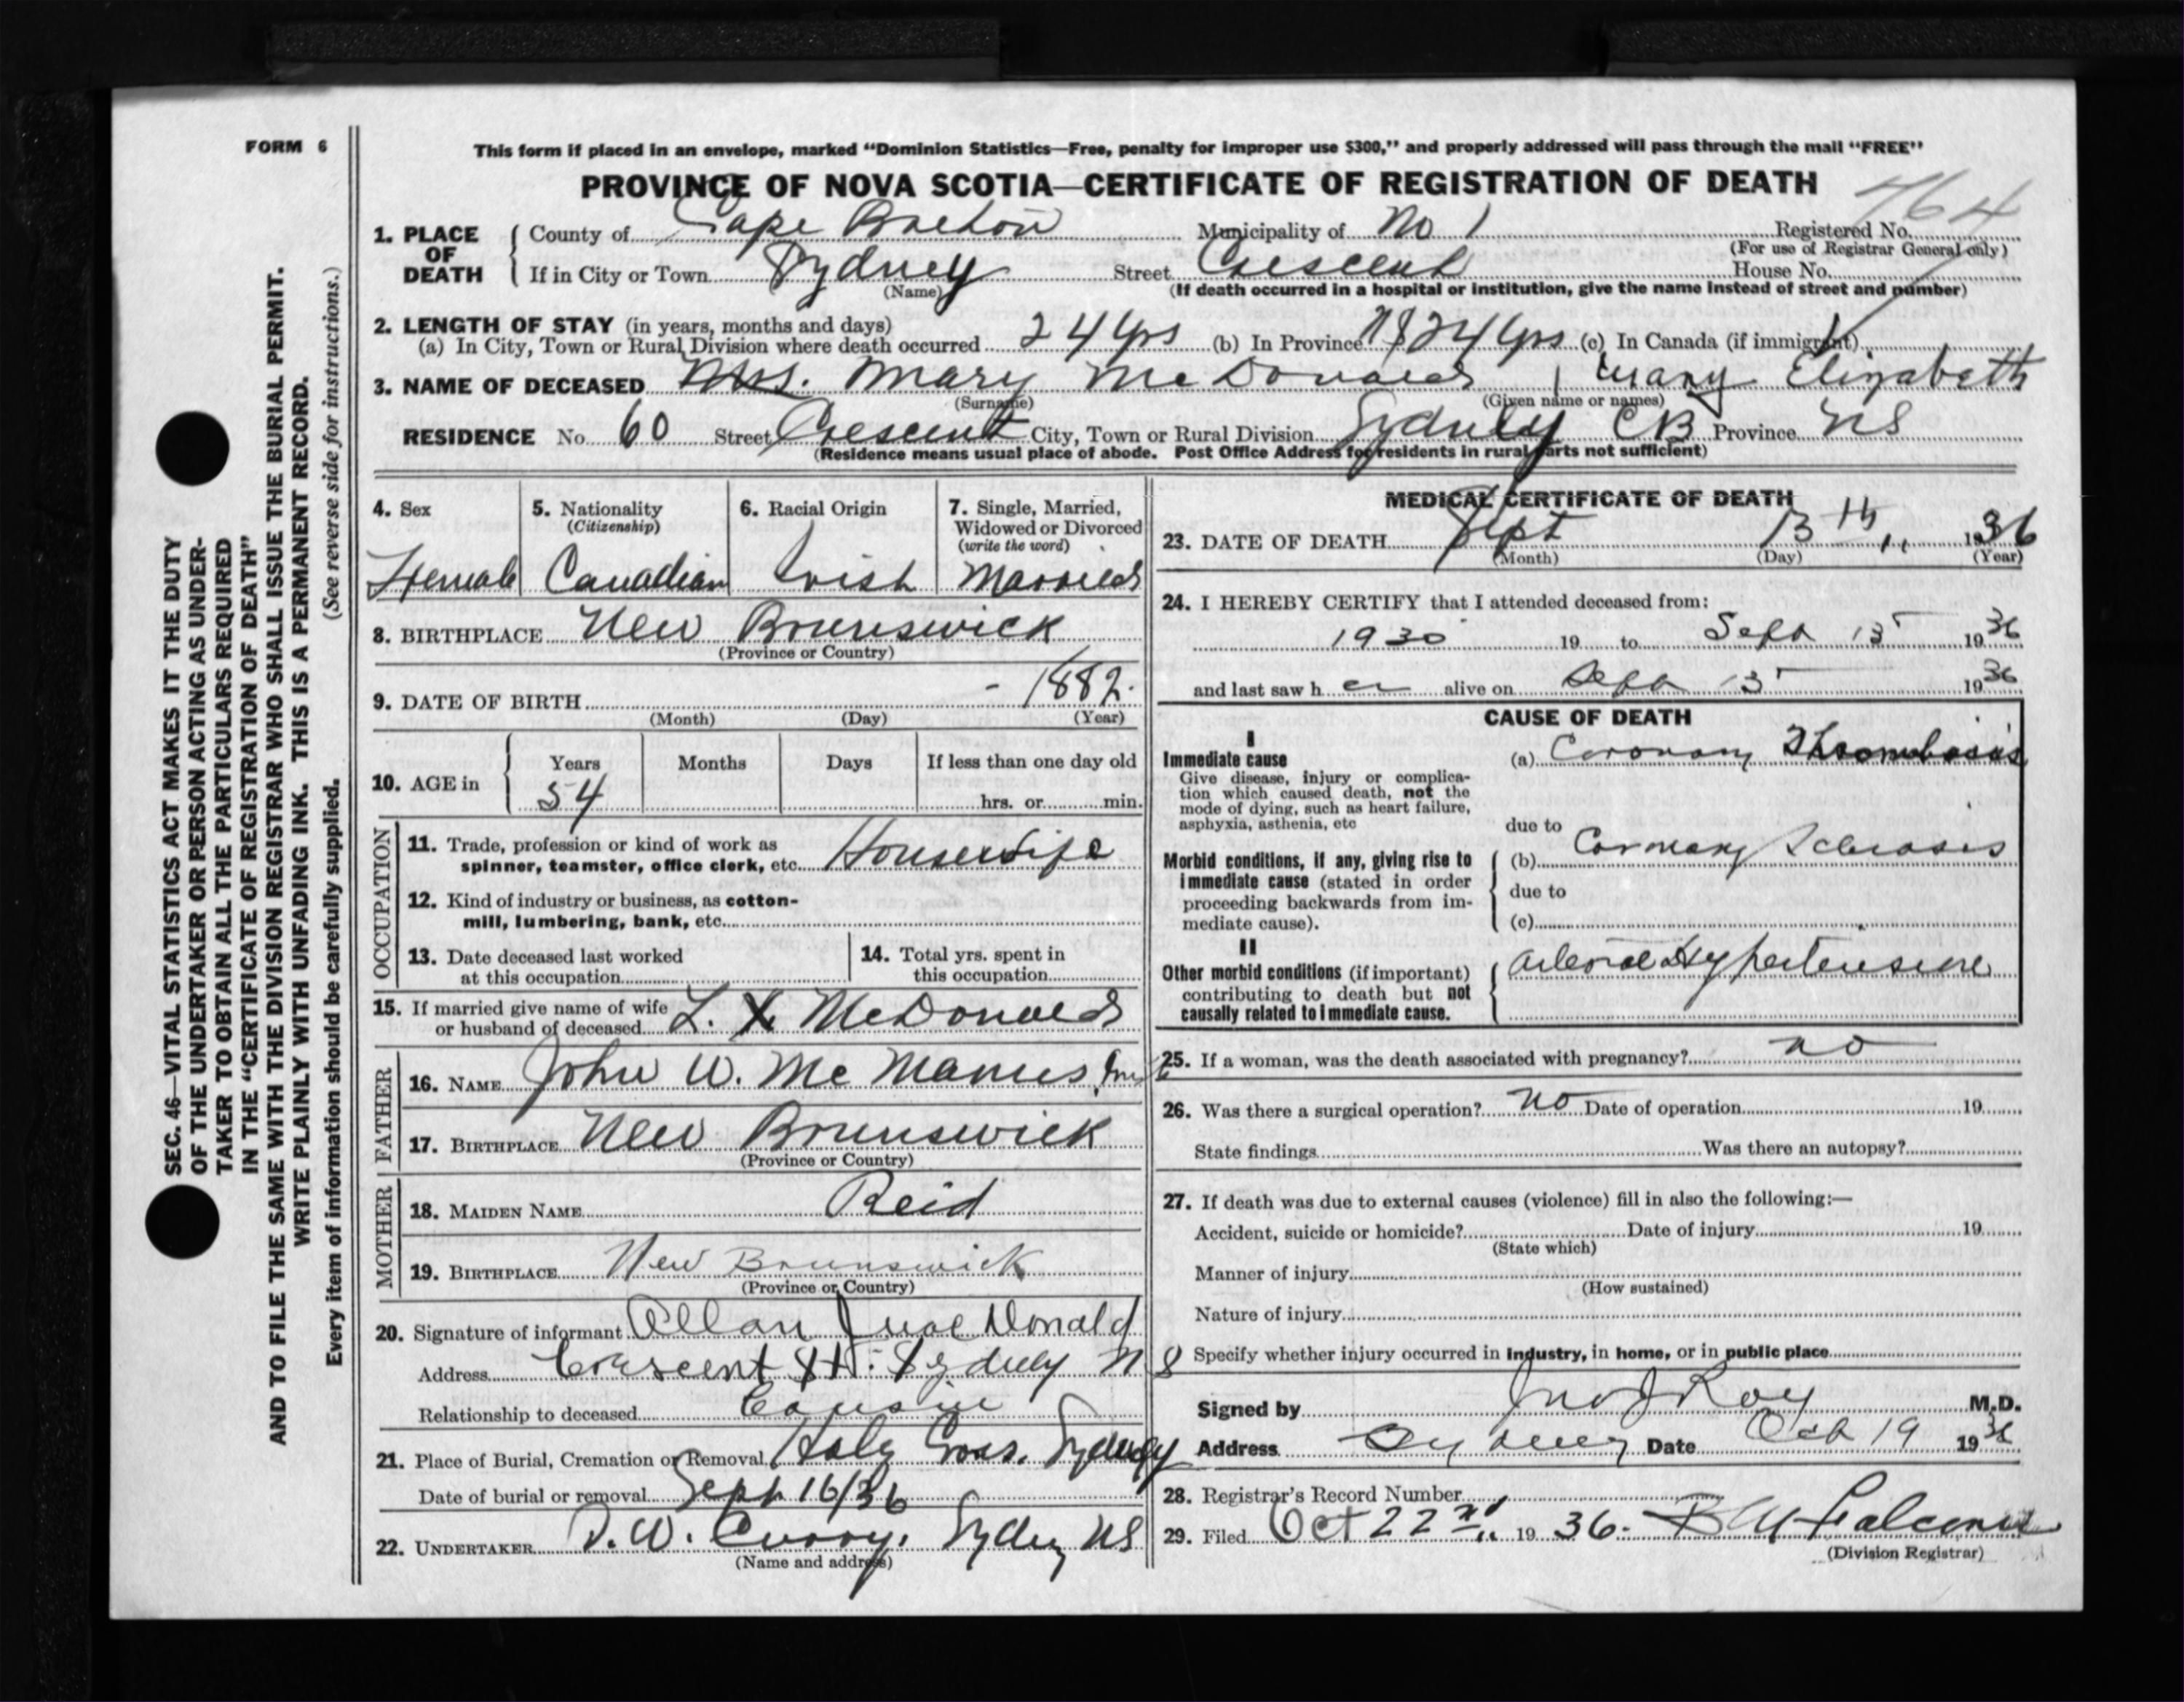 FORM 6
This form if placed in an envelope, marked “Dominion Statistics—Free, penalty for improper use $300,” and properly addressed will pass through the mail “FREE”
PROVINCE OF NOVA SCOTIA—CERTIFICATE OF REGISTRATION OF DEATH
1. PLACE OF DEATH { County of Cape Breton Municipality of No 1 Registered No. 764
(For use of Registrar General only)
If in City or Town Sydney Street Crescent House No.
(Name) (If death occurred in a hospital or institution, give the name instead of street and number)
2. LENGTH OF STAY (in years, months and days)
(a) In City, Town or Rural Division where death occurred 24 yrs (b) In Province 24 yrs (c) In Canada (if immigrant)
3. NAME OF DECEASED Mrs. Mary McDonald Mary Elizabeth
(Surname) (Given name or names)
RESIDENCE No. 60 Street Crescent City, Town or Rural Division Sydney CB Province NS
(Residence means usual place of abode. Post Office Address for residents in rural parts not sufficient)
4. Sex
Female
5. Nationality
(Citizenship)
Canadian
6. Racial Origin
Irish
7. Single, Married,
Widowed or Divorced
(write the word)
Married
8. BIRTHPLACE New Brunswick
(Province or Country)
9. DATE OF BIRTH - 1882.
(Month) (Day) (Year)
10. AGE in { Years Months Days If less than one day old
54 hrs. or min.
OCCUPATION
11. Trade, profession or kind of work as
spinner, teamster, office clerk, etc. Housewife
12. Kind of industry or business, as cotton-
mill, lumbering, bank, etc.
13. Date deceased last worked
at this occupation
14. Total yrs. spent in
this occupation
15. If married give name of wife
or husband of deceased L. X. McDonald
FATHER
16. NAME John W. McManus
17. BIRTHPLACE New Brunswick
(Province or Country)
MOTHER
18. MAIDEN NAME Reid
19. BIRTHPLACE New Brunswick
(Province or Country)
20. Signature of informant Allan J MacDonald
Address Crescent St. Sydney N S
Relationship to deceased Cousin
21. Place of Burial, Cremation or Removal Holy Cross. Sydney
Date of burial or removal Sept 16/36
22. UNDERTAKER D. W. Curry, Sydney NS
(Name and address)
MEDICAL CERTIFICATE OF DEATH
23. DATE OF DEATH Sept 13th 1936
(Month) (Day) (Year)
24. I HEREBY CERTIFY that I attended deceased from:
1930 19 to Sept 13 1936
and last saw her alive on Sept 13 1936
CAUSE OF DEATH
I
Immediate cause
Give disease, injury or complica-
tion which caused death, not the
mode of dying, such as heart failure,
asphyxia, asthenia, etc
(a) Coronary Thrombosis
due to
Morbid conditions, if any, giving rise to
immediate cause (stated in order
proceeding backwards from im-
mediate cause).
(b) Coronary Sclerosis
due to
(c)
II
Other morbid conditions (if important)
contributing to death but not
causally related to immediate cause.
Arterial Hypertension
25. If a woman, was the death associated with pregnancy? no
26. Was there a surgical operation? No Date of operation 19
State findings Was there an autopsy?
27. If death was due to external causes (violence) fill in also the following:—
Accident, suicide or homicide? Date of injury 19
(State which)
Manner of injury
(How sustained)
Nature of injury
Specify whether injury occurred in industry, in home, or in public place
Signed by Jno J Roy M.D.
Address Sydney Date Oct 19 1936
28. Registrar's Record Number
29. Filed Oct 22nd 1936.
(Division Registrar)
SEC. 46—VITAL STATISTICS ACT MAKES IT THE DUTY
OF THE UNDERTAKER OR PERSON ACTING AS UNDER-
TAKER TO OBTAIN ALL THE PARTICULARS REQUIRED
IN THE “CERTIFICATE OF REGISTRATION OF DEATH”
AND TO FILE THE SAME WITH THE DIVISION REGISTRAR WHO SHALL ISSUE THE BURIAL PERMIT.
WRITE PLAINLY WITH UNFADING INK. THIS IS A PERMANENT RECORD.
Every item of information should be carefully supplied. (See reverse side for instructions.)